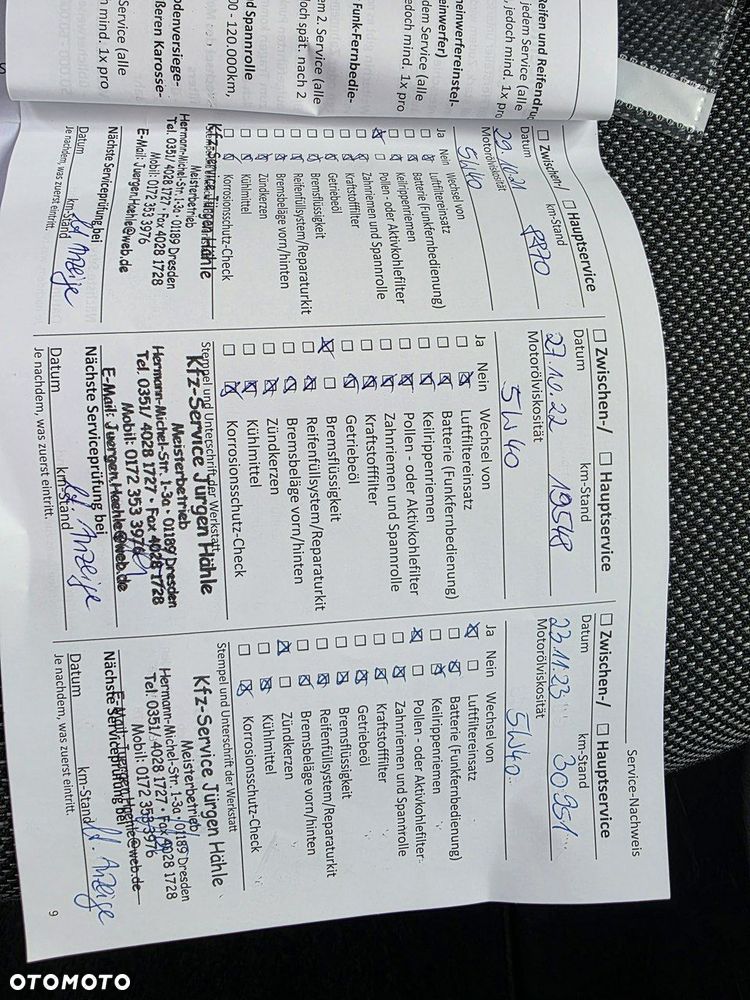 Service-Nachweis
☐ Zwischen-/ ☐ Hauptservice
Datum km-Stand
29.10.21
Motorölviskosität
5W40
Ja Nein Wechsel von
Luftfiltereinsatz
Batterie (Funkfernbedienung)
Keilrippenriemen
Pollen - oder Aktivkohlefilter
Zahnriemen und Spannrolle
Kraftstofffilter
Getriebeöl
Bremsflüssigkeit
Reifenfüllsystem/Reparaturkit
Bremsbeläge vorn/hinten
Zündkerzen
Kühlmittel
Korrosionsschutz-Check
Kfz-Service Jürgen Hähle
Meisterbetrieb
Hermann-Michel-Str. 1-3a · 01189 Dresden
Tel. 0351/ 4028 1727 · Fax 4028 1728
Mobil: 0172 353 3976
E-Mail: Juergen.Haehle@web.de
Nächste Serviceprüfung bei
Datum km-Stand
lt. Anzeige
Je nachdem, was zuerst eintritt.
☐ Zwischen-/ ☐ Hauptservice
Datum km-Stand
27.10.22 19548
Motorölviskosität
5W40
Ja Nein Wechsel von
Luftfiltereinsatz
Batterie (Funkfernbedienung)
Keilrippenriemen
Pollen - oder Aktivkohlefilter
Zahnriemen und Spannrolle
Kraftstofffilter
Getriebeöl
Bremsflüssigkeit
Reifenfüllsystem/Reparaturkit
Bremsbeläge vorn/hinten
Zündkerzen
Kühlmittel
Korrosionsschutz-Check
Stempel und Unterschrift der Werkstatt
Kfz-Service Jürgen Hähle
Meisterbetrieb
Hermann-Michel-Str. 1-3a · 01189 Dresden
Tel. 0351/ 4028 1727 · Fax 4028 1728
Mobil: 0172 353 3976
E-Mail: Juergen.Haehle@web.de
Nächste Serviceprüfung bei
Datum km-Stand
lt. Anzeige
Je nachdem, was zuerst eintritt.
☐ Zwischen-/ ☐ Hauptservice
Datum km-Stand
23.11.23 30951
Motorölviskosität
5W40
Ja Nein Wechsel von
Luftfiltereinsatz
Batterie (Funkfernbedienung)
Keilrippenriemen
Pollen - oder Aktivkohlefilter
Zahnriemen und Spannrolle
Kraftstofffilter
Getriebeöl
Bremsflüssigkeit
Reifenfüllsystem/Reparaturkit
Bremsbeläge vorn/hinten
Zündkerzen
Kühlmittel
Korrosionsschutz-Check
Stempel und Unterschrift der Werkstatt
Kfz-Service Jürgen Hähle
Meisterbetrieb
Hermann-Michel-Str. 1-3a · 01189 Dresden
Tel. 0351/ 4028 1727 · Fax 4028 1728
Mobil: 0172 353 3976
E-Mail: Juergen.Haehle@web.de
Nächste Serviceprüfung bei
Datum km-Stand
lt. Anzeige
Je nachdem, was zuerst eintritt.
9
OTOMOTO